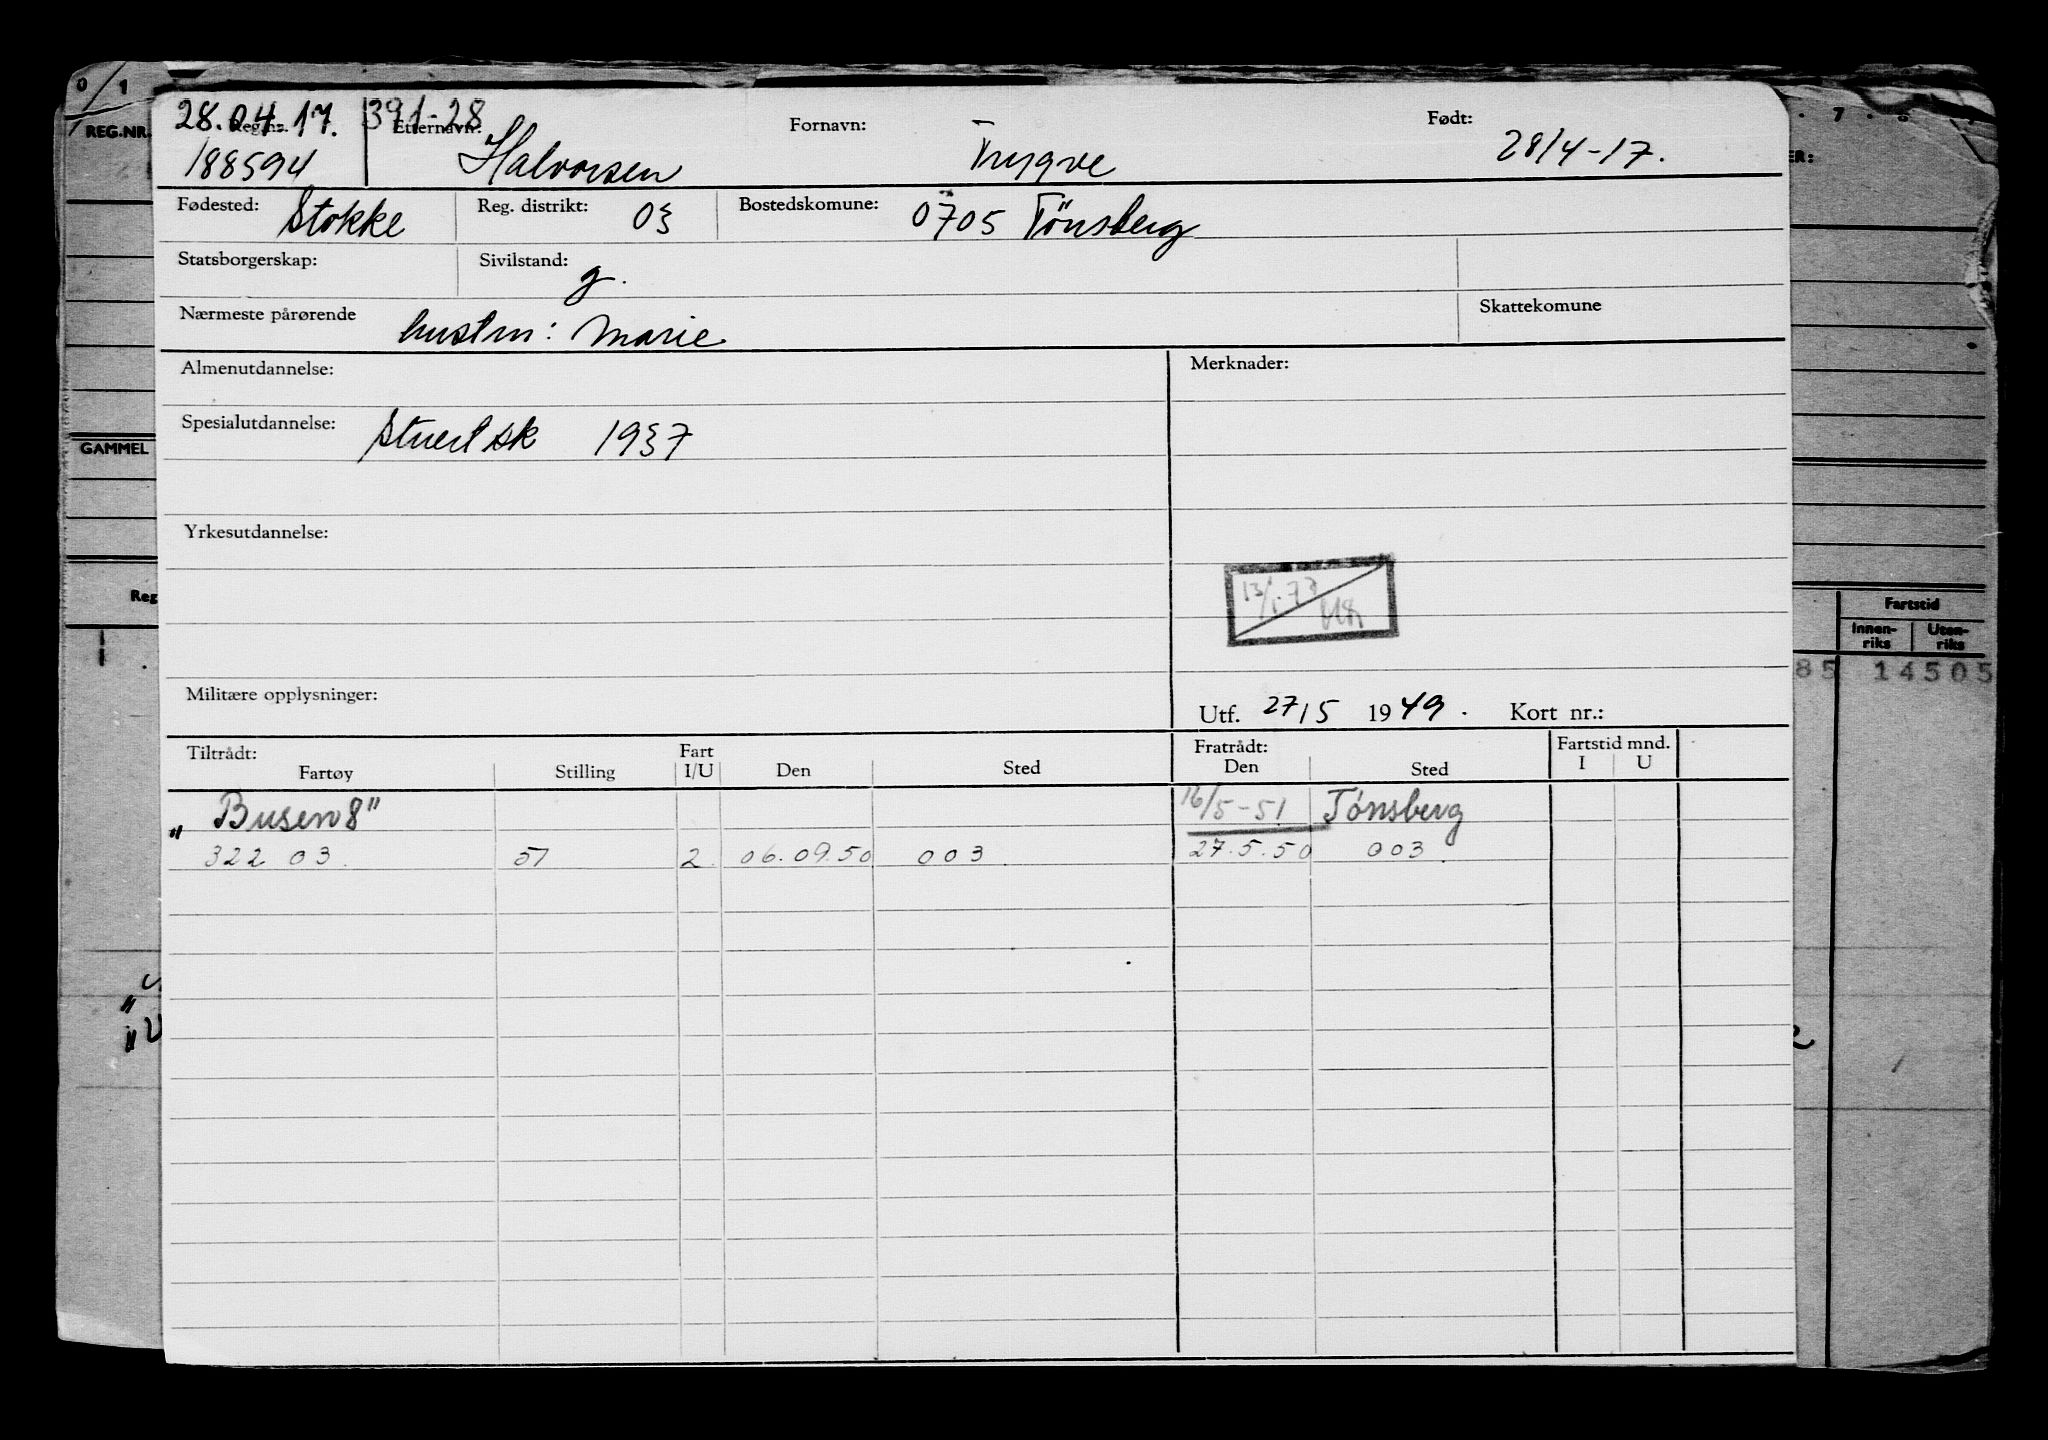 0/1
28.04.17. 391-28
REG.NR. Reg.nr. Etternavn: Fornavn: Født:
188594 Halvorsen Trygve 28/4-17.
Fødested: Stokke Reg. distrikt: 03 Bostedskomune: 0705 Tönsberg
Statsborgerskap: Sivilstand: g.
Nærmeste pårørende hustru: Marie Skattekomune
Almenutdannelse: Merknader:
Spesialutdannelse: Stuert sk 1937
GAMMEL
Yrkesutdannelse:
13/1.77
Reg
Fartstid
Innen-riks Uten-riks
85 14505
Militære opplysninger:
Utf. 27/5 1949. Kort nr.:
Tiltrådt: Fart Fratrådt: Fartstid mnd.
Fartøy Stilling I/U Den Sted Den Sted I U
"Busen 8" 16/5-51 Tønsberg
322 03. 51 2. 06.09.50 003. 27.5.50 003.